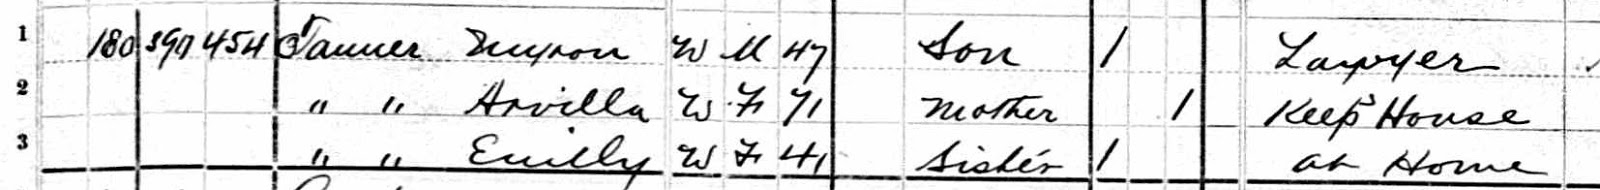 1 180 390 454 Tanner Myron W M 47 Son 1 Lawyer
2 " " Arvilla W F 71 Mother 1 Keep'g House
3 " " Emilly W F 41 Sister 1 at Home